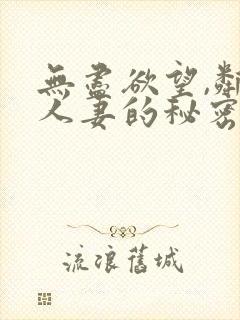 無盡欲望,鄰
人妻的秘密
流浪舊城